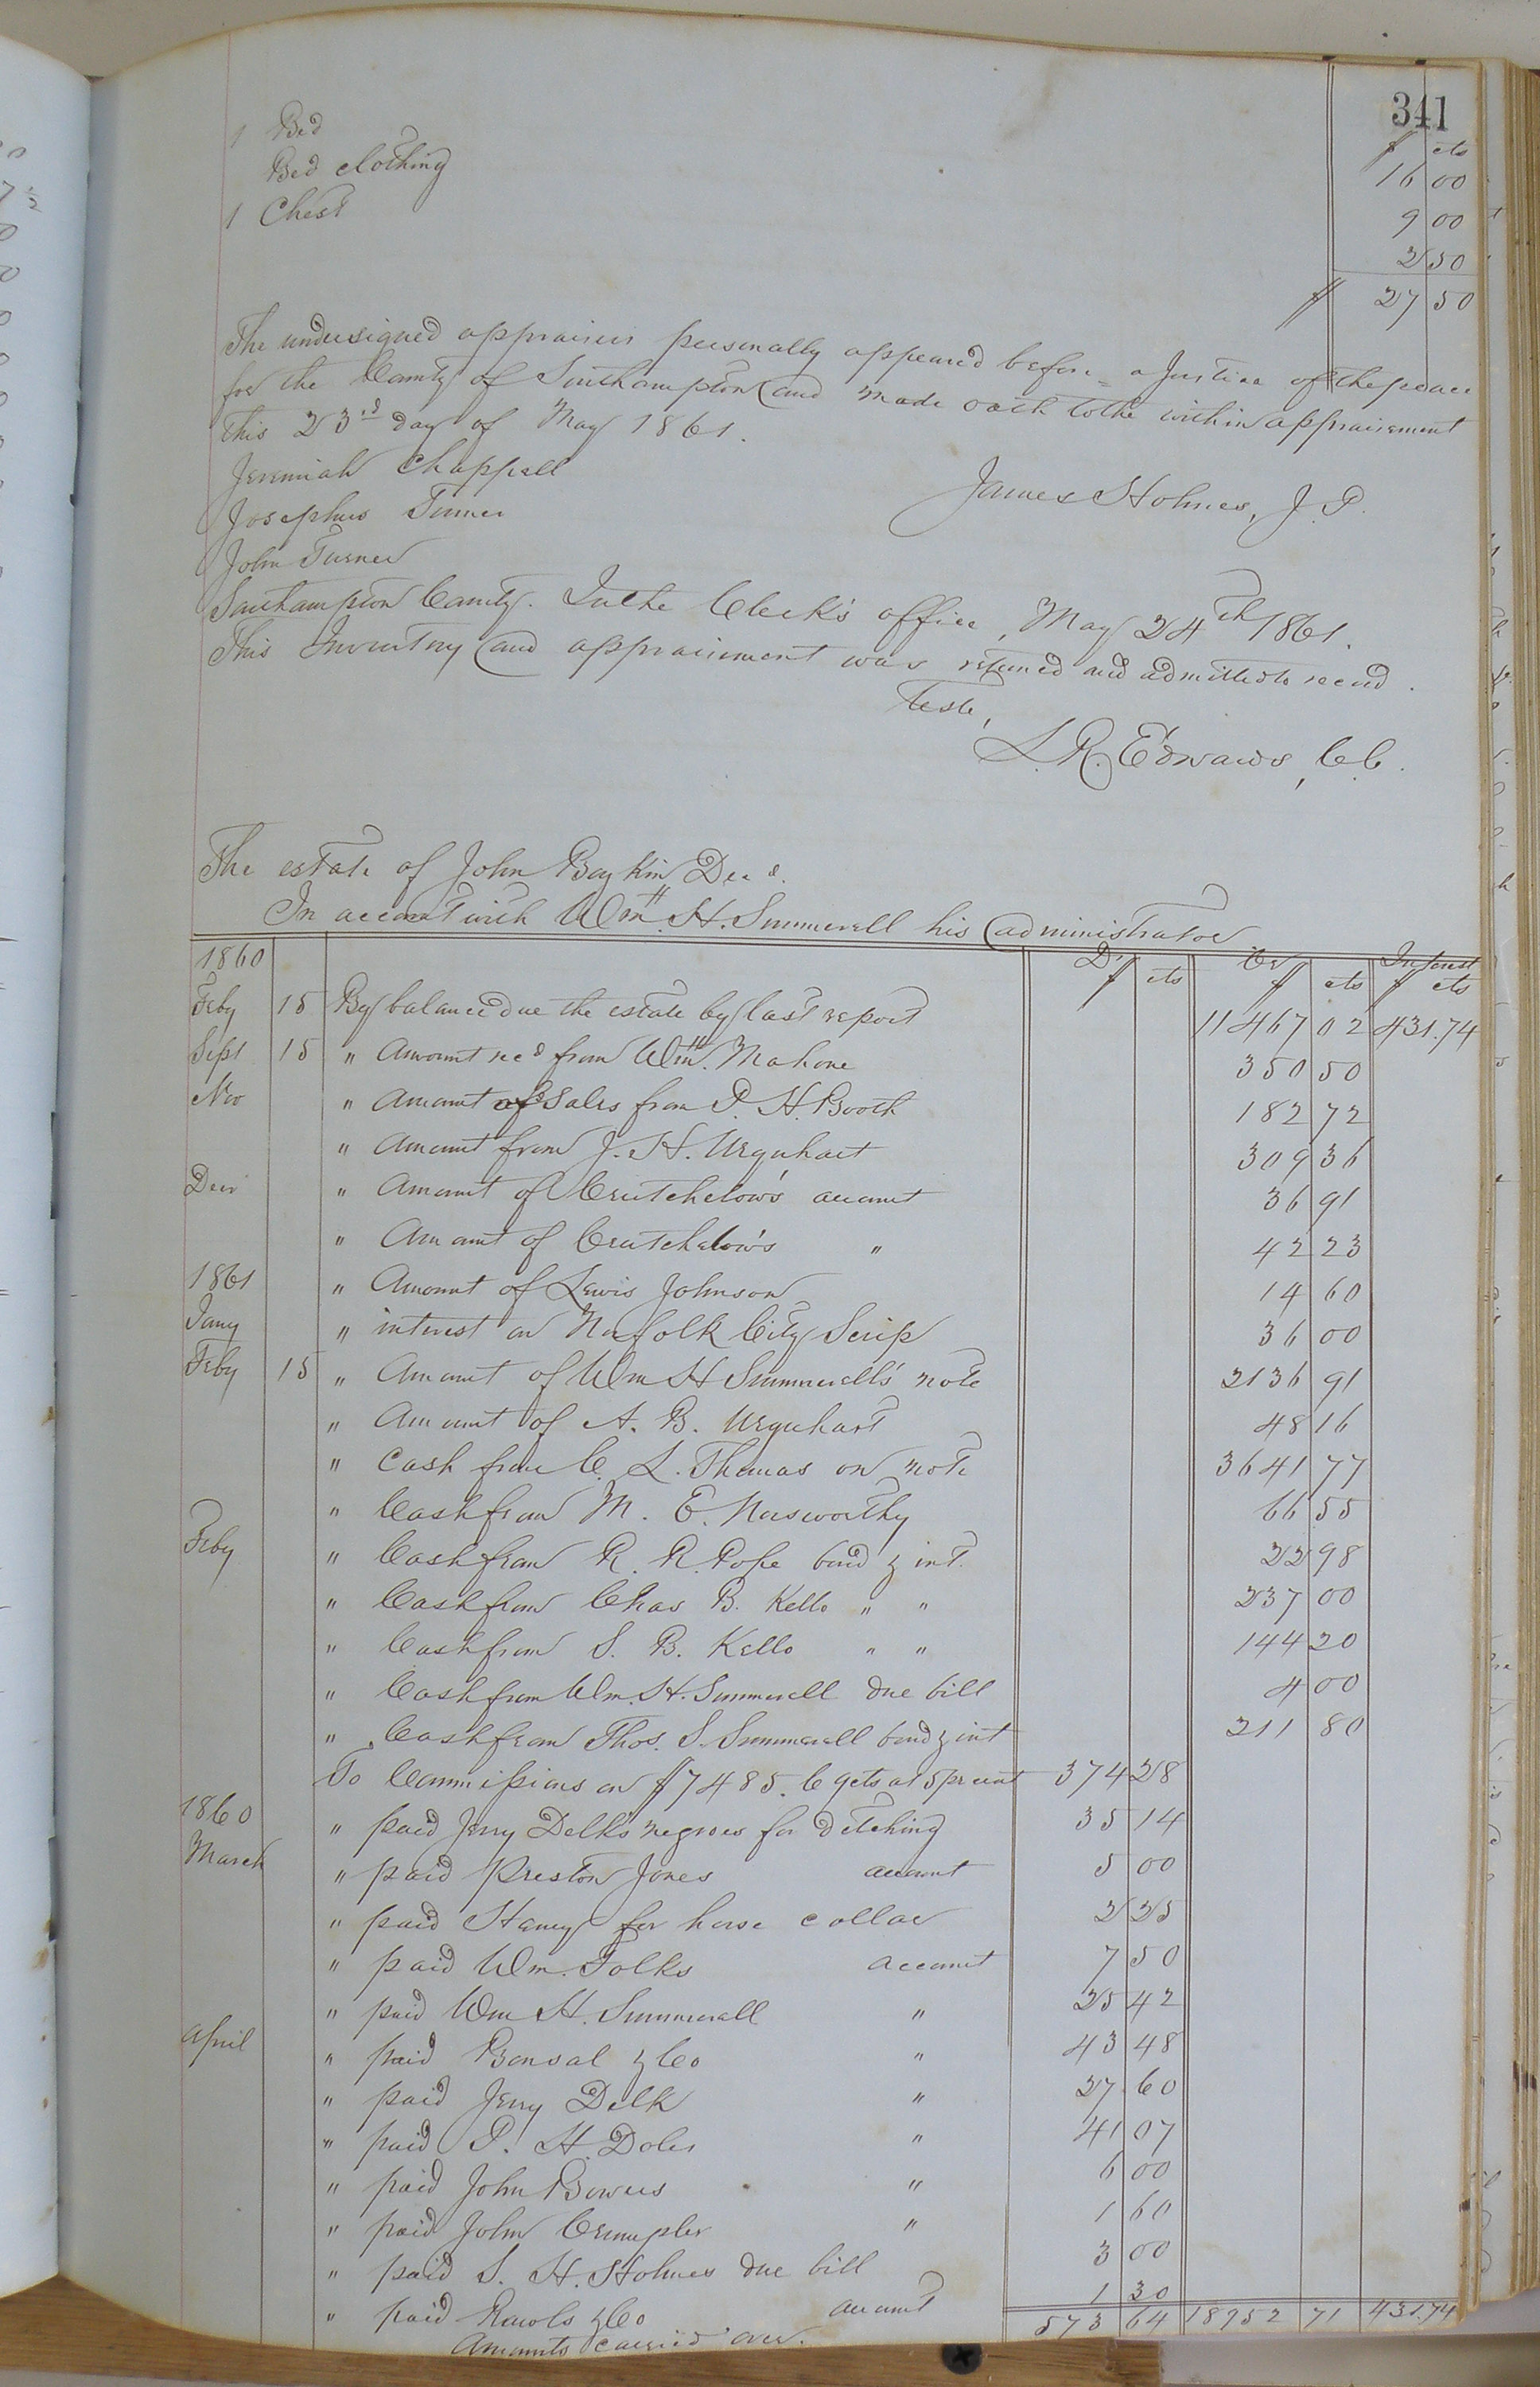 341
$ cts
1 Bed 16 00
Bed clothing 9 00
1 Chest 2 50
$ 27 50
The undersigned appraisers personally appeared before a Justice of the peace
for the County of Southampton and made oath to the within appraisement
this 23rd day of May 1861.
Jeremiah Chappell
James Holmes, J. P.
Josephus Turner
John Turner
Southampton County. In the Clerk's office, May 24th 1861.
This Inventory and appraisement was returned and admitted to record.
Teste,
L. R. Edwards, C.C.
The estate of John Boykin Decd.
In account with Wm. H. Summerell his administrator
1860 Dr Cr Interest
$ cts $ cts $ cts
Feby 15 By balance due the estate by last report 11467 02 431.74
Sept 15 " Amount recd from Wm. Mahone 350 50
Nov " Amount of Sales from P. H. Booth 182 72
" Amount from J. H. Urquhart 309 36
Decr " Amount of Crutchelow's account 36 91
" Amount of Crutchelow's " 42 23
1861 " Amount of Lewis Johnson 14 60
Jany " interest on Norfolk City Scrip 36 00
Feby 15 " Amount of Wm H Summerell's note 2136 91
" Amount of A. B. Urquhart 48 16
" Cash from C. L. Thomas on note 3641 77
" Cash from M. E. Norsworthy 66 55
Feby " Cash from R. R. Pope bond & int. 22 98
" Cash from Chas B. Kello " " 237 00
" Cash from S. B. Kello " " 144 20
" Cash from Wm. H. Summerell due bill 4 00
" Cash from Thos. S. Summerell bond & int 211 80
To Commissions on $7485.69cts at 5 pr cent 374 28
1860 " paid Jerry Delk's negroes for ditching 35 14
March " paid Preston Jones account 5 00
" paid Haney for horse collar 2 25
" paid Wm. Folks account 7 50
" paid Wm H. Summerell " 25 42
April " paid Bonsal & Co " 43 48
" paid Jerry Delk " 27 60
" paid P. H. Doles " 41 07
" paid John Bowers " 6 00
" paid John Crumpler " 1 60
" paid S. H. Holmes due bill 3 00
" paid Rawls & Co account 1 30
Amounts carried over. 573 64 18952 71 431.74